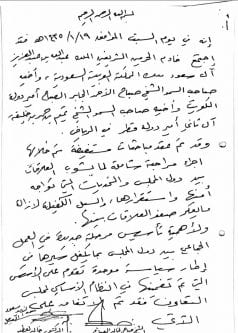 بسم الله الرحمن الرحيم
إنه في يوم السبت الموافق ١٤٣٥/١/١٩هـ فقد
اجتمع خادم الحرمين الشريفين الملك عبدالله بن عبدالعزيز
آل سعود ملك المملكة العربية السعودية، وأخيه
صاحب السمو الشيخ صباح الأحمد الجابر الصباح أمير دولة
الكويت وأخيه صاحب السمو الشيخ تميم بن حمد بن خليفة
آل ثاني أمير دولة قطر في الرياض.
وقد تم عقد مباحثات مستفيضة تم خلالها
اجراء مراجعة شاملة لما يشوب العلاقات
بين دول المجلس والتحديات التي تواجه
أمنها واستقرارها والسبل الكفيلة لإزالة
ما يعكر صفو العلاقات بينها.
ولأهمية تأسيس مرحلة جديدة في العمل
الجماعي بين دول المجلس بما يكفل سيرها في
إطار سياسة موحدة تقوم على الأسس
التي تم تضمينها في النظام الأساسي لمجلس
التعاون فقد تم الاتفاق على